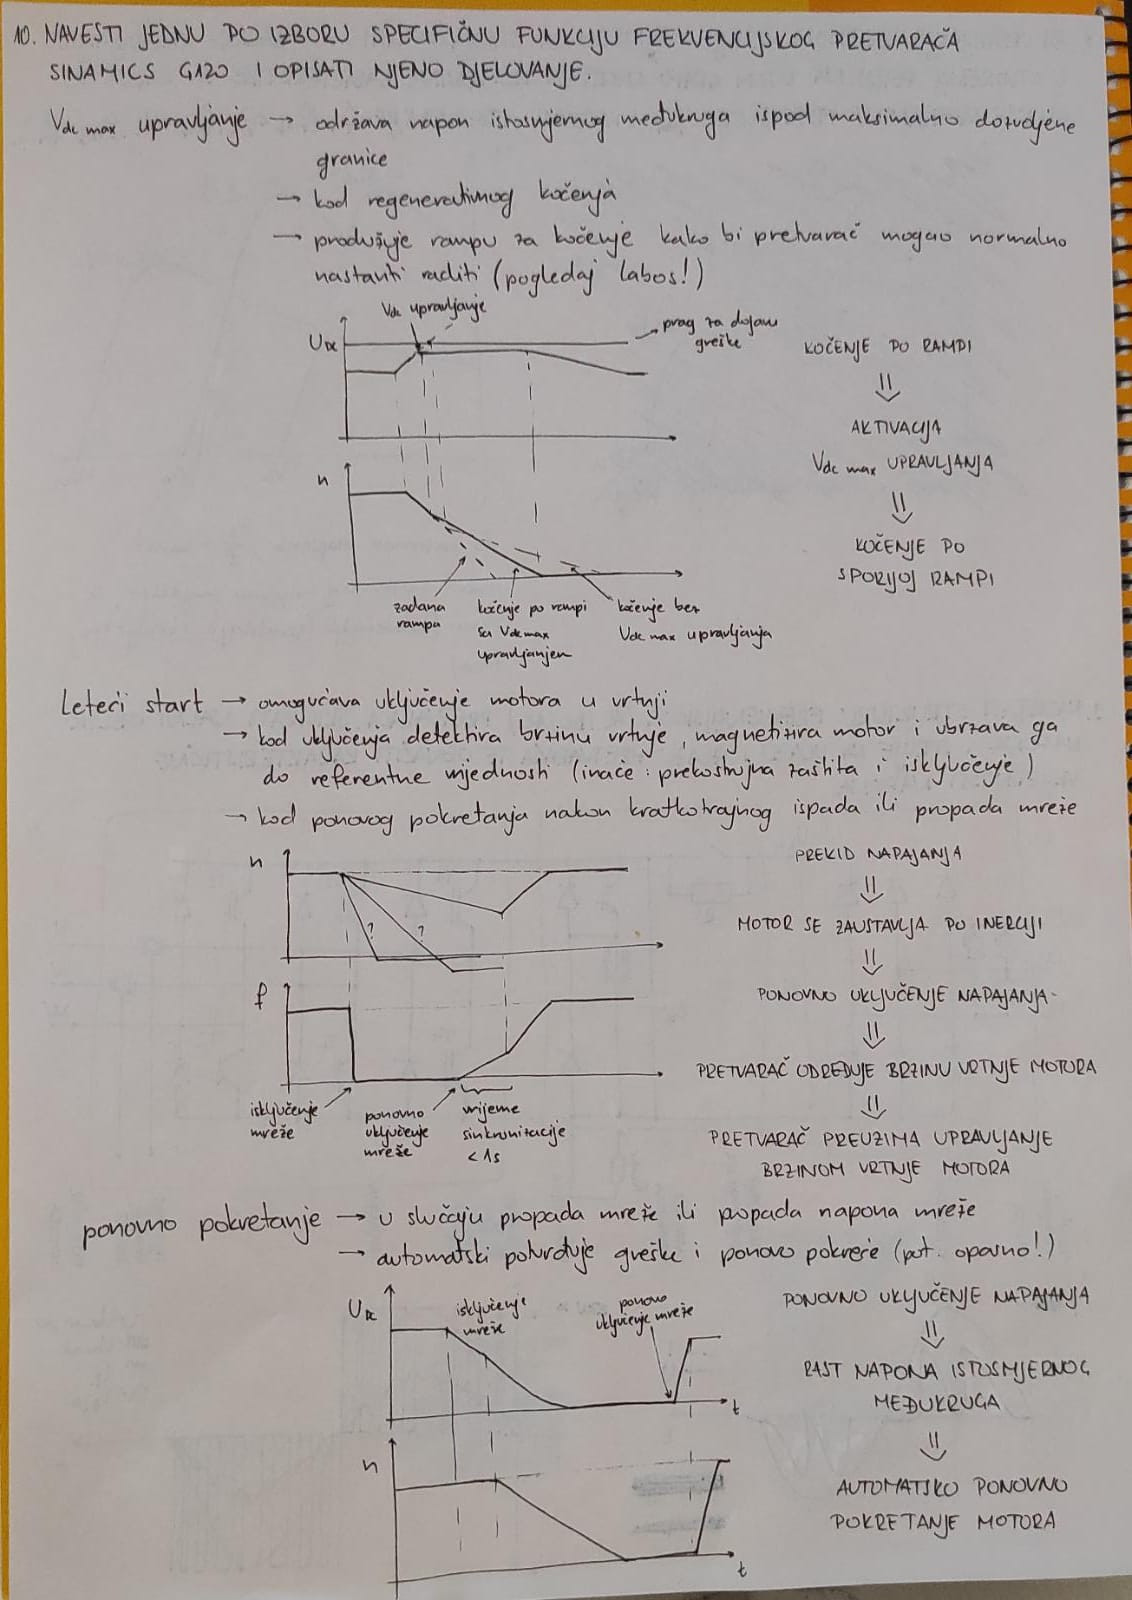 10. NAVESTI JEDNU PO IZBORU SPECIFIČNU FUNKCIJU FREKVENCIJSKOG PRETVARAČA
SINAMICS G120 I OPISATI NJENO DJELOVANJE.
Vdc max upravljanje → održava napon istosmjernog međukruga ispod maksimalno dozvoljene
granice
→ kod regenerativnog kočenja
→ produžuje rampu za kočenje kako bi pretvarač mogao normalno
nastaviti raditi (pogledaj labos!)
Vdc upravljanje
UDC
prag za dojavu
greške
n
zadana
rampa
kočenje po rampi
sa Vdc max
upravljanjem
kočenje bez
Vdc max upravljanja
KOČENJE PO RAMPI
⇓
AKTIVACIJA
Vdc max UPRAVLJANJA
⇓
KOČENJE PO
SPORIJOJ RAMPI
leteći start → omogućava uključenje motora u vrtnji
→ kod uključenja detektira brzinu vrtnje, magnetizira motor i ubrzava ga
do referentne vrijednosti (inače: prekostrujna zaštita i isključenje)
→ kod ponovog pokretanja nakon kratkotrajnog ispada ili propada mreže
n
? ?
f
isključenje
mreže
ponovno
uključenje
mreže
vrijeme
sinkronizacije
< 1s
PREKID NAPAJANJA
⇓
MOTOR SE ZAUSTAVLJA PO INERCIJI
⇓
PONOVNO UKLJUČENJE NAPAJANJA
⇓
PRETVARAČ ODREĐUJE BRZINU VRTNJE MOTORA
⇓
PRETVARAČ PREUZIMA UPRAVLJANJE
BRZINOM VRTNJE MOTORA
ponovno pokretanje → u slučaju propada mreže ili propada napona mreže
→ automatski potvrđuje greške i ponovo pokreće (pot. opasno!)
UDC
isključenje
mreže
ponovo
uključenje mreže
t
n
t
PONOVNO UKLJUČENJE NAPAJANJA
⇓
RAST NAPONA ISTOSMJERNOG
MEĐUKRUGA
⇓
AUTOMATSKO PONOVNO
POKRETANJE MOTORA